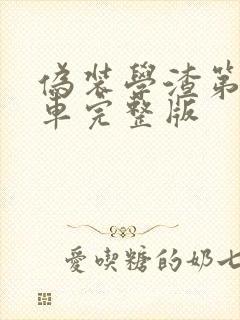 偽裝學渣第
車完整版
愛喫糖的奶七